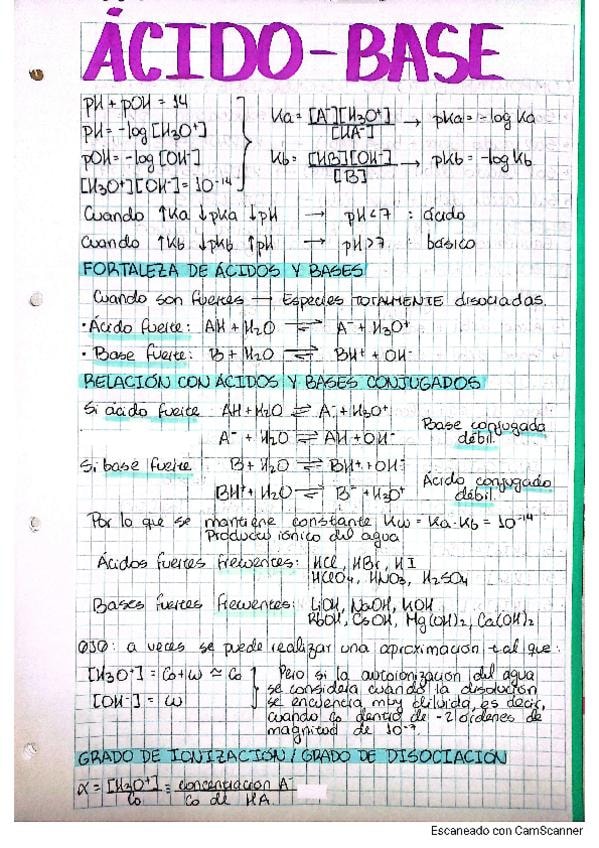 ÁCIDO-BASE
pH + pOH = 14
pH = -log [H3O+]
pOH = -log [OH-]
[H3O+][OH-] = 10^-14
Ka = [A-][H3O+] / [HA-] → pKa = -log Ka
Kb = [HB][OH-] / [B] → pKb = -log Kb
Cuando ↑Ka ↓pKa ↓pH → pH<7 : ácido
Cuando ↑Kb ↓pKb ↑pH → pH>7 : básico
FORTALEZA DE ÁCIDOS Y BASES
Cuando son fuertes → Especies TOTALMENTE disociadas.
· Ácido fuerte: AH + H2O ⇌ A- + H3O+
· Base fuerte: B + H2O ⇌ BH+ + OH-
RELACIÓN CON ÁCIDOS Y BASES CONJUGADOS
Si ácido fuerte AH + H2O ⇌ A- + H3O+
A- + H2O ⇌ AH + OH-
Base conjugada
débil
Si base fuerte B + H2O ⇌ BH+ + OH-
BH+ + H2O ⇌ B- + H3O+
Ácido conjugado
débil
Por lo que se mantiene constante Kw = Ka·Kb = 10^-14
Producto iónico del agua
Ácidos fuertes frecuentes: HCl, HBr, HI
HClO4, HNO3, H2SO4
Bases fuertes frecuentes: LiOH, NaOH, KOH
RbOH, CsOH, Mg(OH)2, Ca(OH)2
OJO: a veces se puede realizar una aproximación tal que:
[H3O+] = Co+w ≃ Co
[OH-] = w
Pero si la autoionización del agua
se considera cuando la disolución
se encuentra muy diluida, es decir,
cuando Co dentro de -2 órdenes de
magnitud de 10^-7.
GRADO DE IONIZACIÓN / GRADO DE DISOCIACIÓN
α = [H3O+] / Co = concentración A / Co de HA
Escaneado con CamScanner